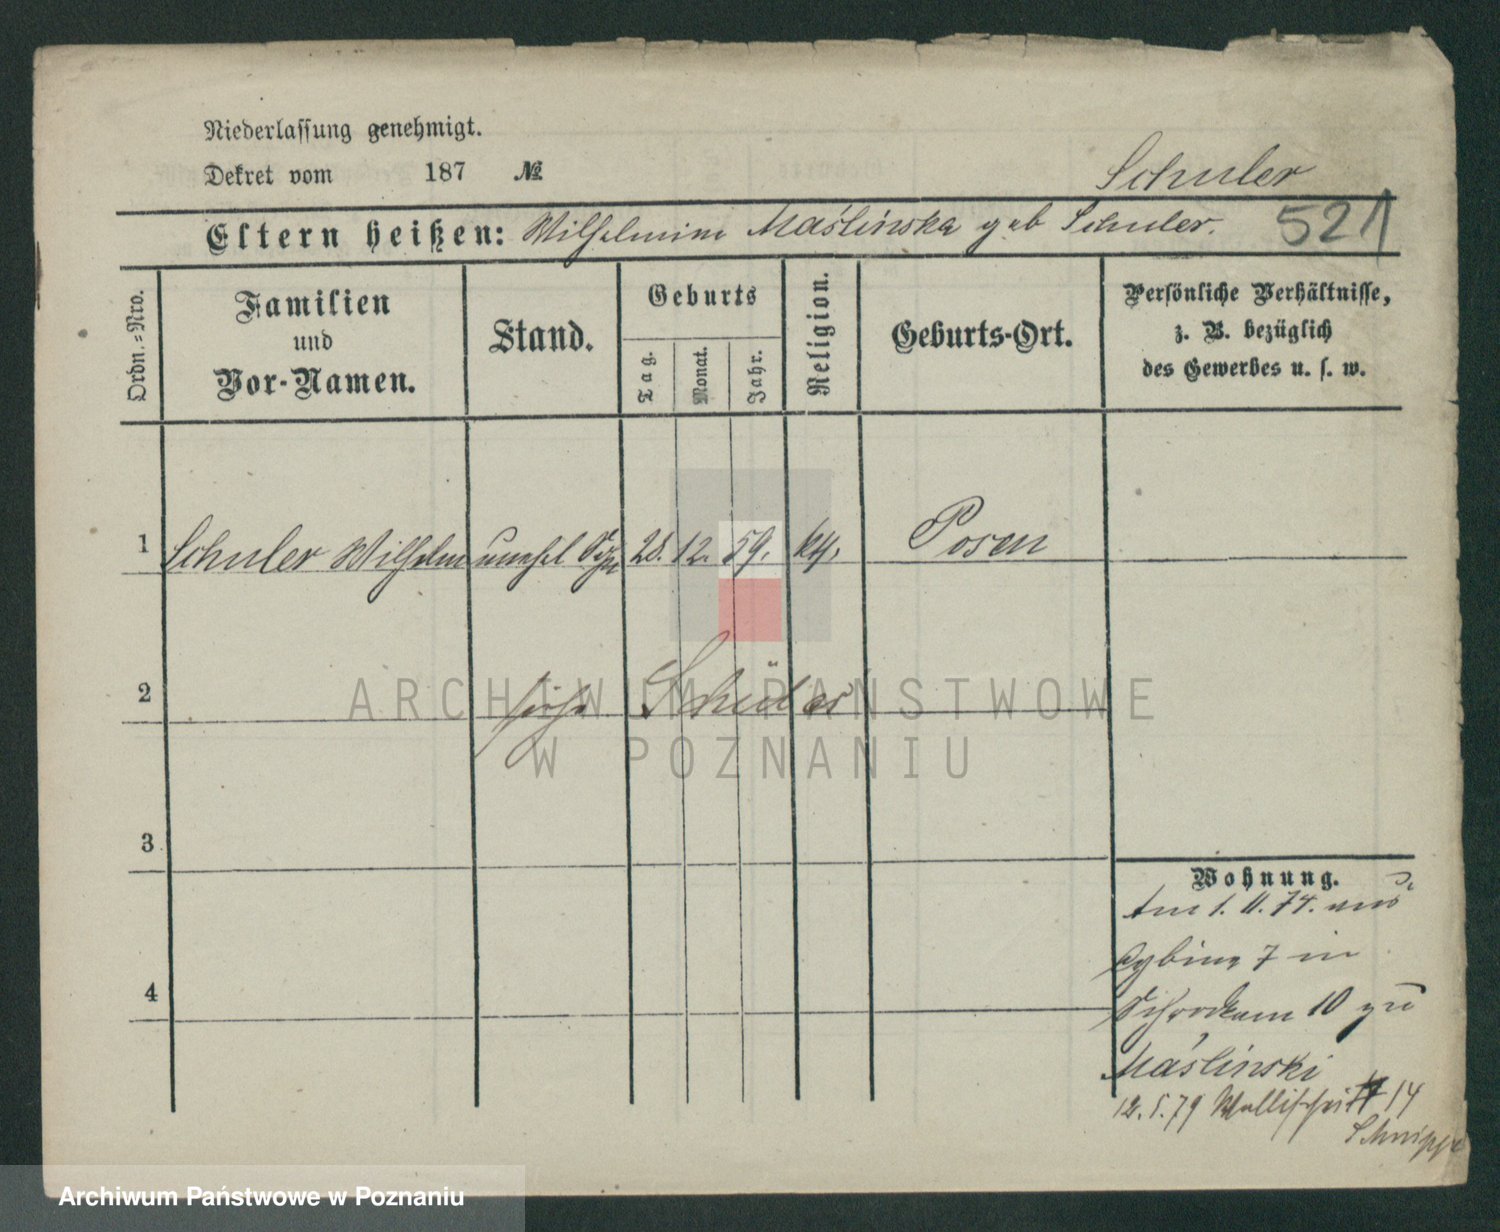 Niederlassung genehmigt.
Dekret vom 187 №
Schuler
Eltern heißen: Wilhelmine Maślinska geb Schuler.
521
Ordn.-Nro.
Familien
und
Vor-Namen.
Stand.
Geburts
Tag.
Monat.
Jahr.
Religion.
Geburts-Ort.
Persönliche Verhältnisse,
z. B. bezüglich
des Gewerbes u. s. w.
1 Schuler Wilhelm unehel 28. 12. 59. kth. Posen
2 siehe Schüler
ARCHIWUM PAŃSTWOWE
W POZNANIU
3
Wohnung.
Am 1. 11. 74. aus
Cybina 7 in
Schrodkam 10 zu
4
Maślinski
12. 5. 79 Wallischei 14
Archiwum Państwowe w Poznaniu